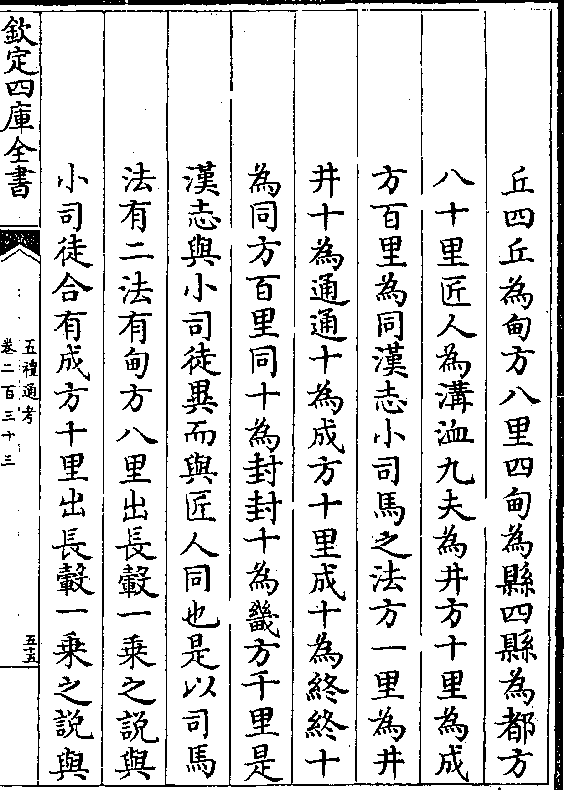 丘四丘為甸方八里四甸為縣四縣為都方
八十里匠人為溝洫九夫為井方十里為成
方百里為同漢志小司馬之法方一里為井
井十為通通十為成方十里成十為終終十
為同方百里同十為封封十為畿方千里是
漢志與小司徒異而與匠人同也是以司馬
法有二法有甸方八里出長轂一乗之説與
小司徒合有成方十里出長轂一乗之説與
欽定四庫全書
五禮通考
卷二百三十三
五五